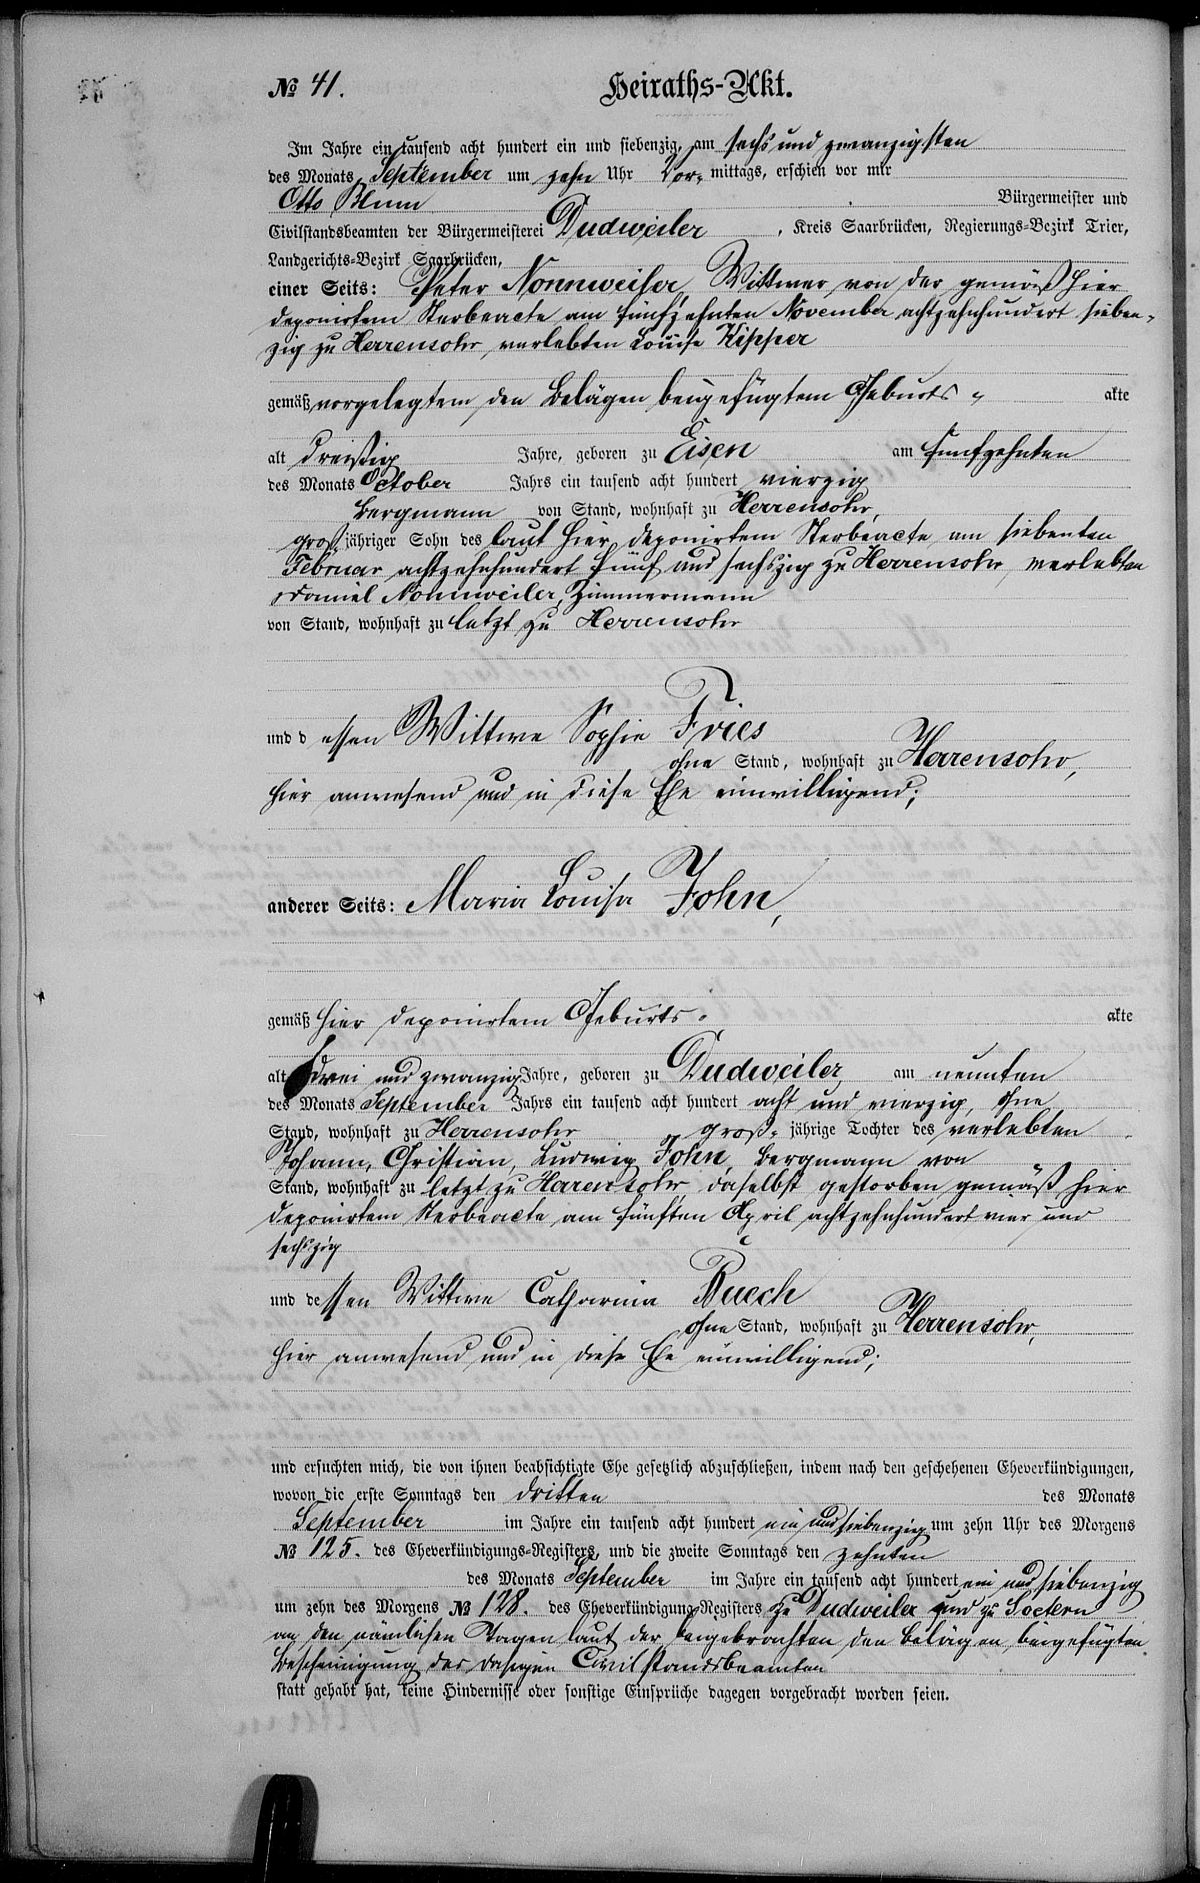 № 41. Heiraths-Akt.
Im Jahre ein tausend acht hundert ein und siebenzig, am sechs und zwanzigsten
des Monats September um zehn Uhr Vor- mittags, erschien vor mir
Otto Blum Bürgermeister und
Civilstandsbeamten der Bürgermeisterei Dudweiler, Kreis Saarbrücken, Regierungs-Bezirk Trier,
Landgerichts-Bezirk Saarbrücken,
einer Seits: Peter Nonnweiler, Wittwer von der gemäß hier
deponirtem Sterbeacte am fünfzehnten November achtzehnhundert sieben-
zig zu Herrensohr, verlebten Louise Kipper
gemäß vorgelegtem den Belägen beigefügtem Geburts- akte
alt dreißig Jahre, geboren zu Eisen am fünfzehnten
des Monats October Jahrs ein tausend acht hundert vierzig
Bergmann von Stand, wohnhaft zu Herrensohr,
groß jähriger Sohn des laut hier deponirtem Sterbeacte am siebenten
Februar achtzehnhundert fünf und sechszig zu Herrensohr verlebten
Daniel Nonnweiler, Zimmermann
von Stand, wohnhaft zu letzt zu Herrensohr
und dessen Wittwe Sophie Fries
ohne Stand, wohnhaft zu Herrensohr,
hier anwesend und in diese Ehe einwilligend;
anderer Seits: Maria Louisa John,
gemäß hier deponirtem Geburts- akte
alt drei und zwanzig Jahre, geboren zu Dudweiler am neunten
des Monats September Jahrs ein tausend acht hundert acht und vierzig, ohne
Stand, wohnhaft zu Herrensohr groß- jährige Tochter des verlebten
Johann, Christian, Ludwig John, Bergmann von
Stand, wohnhaft zu letzt zu Herrensohr daselbst gestorben gemäß hier
deponirtem Sterbeacte am fünften April achtzehnhundert vier und
sechszig
und dessen Wittwe Catharina Buech
ohne Stand, wohnhaft zu Herrensohr,
hier anwesend und in diese Ehe einwilligend;
und ersuchten mich, die von ihnen beabsichtigte Ehe gesetzlich abzuschließen, indem nach den geschehenen Eheverkündigungen,
wovon die erste Sonntags den dritten des Monats
September im Jahre ein tausend acht hundert ein und siebenzig um zehn Uhr des Morgens
№ 125. des Eheverkündigungs-Registers, und die zweite Sonntags den zehnten
des Monats September im Jahre ein tausend acht hundert ein und siebenzig
um zehn des Morgens № 128. des Eheverkündigung-Registers zu Dudweiler und zu Soetern
an den nämlichen Tagen laut der beigebrachten, den Belägen beigefügten
Bescheinigung des dasigen Civilstandsbeamten
statt gehabt hat, keine Hindernisse oder sonstige Einsprüche dagegen vorgebracht worden seien.